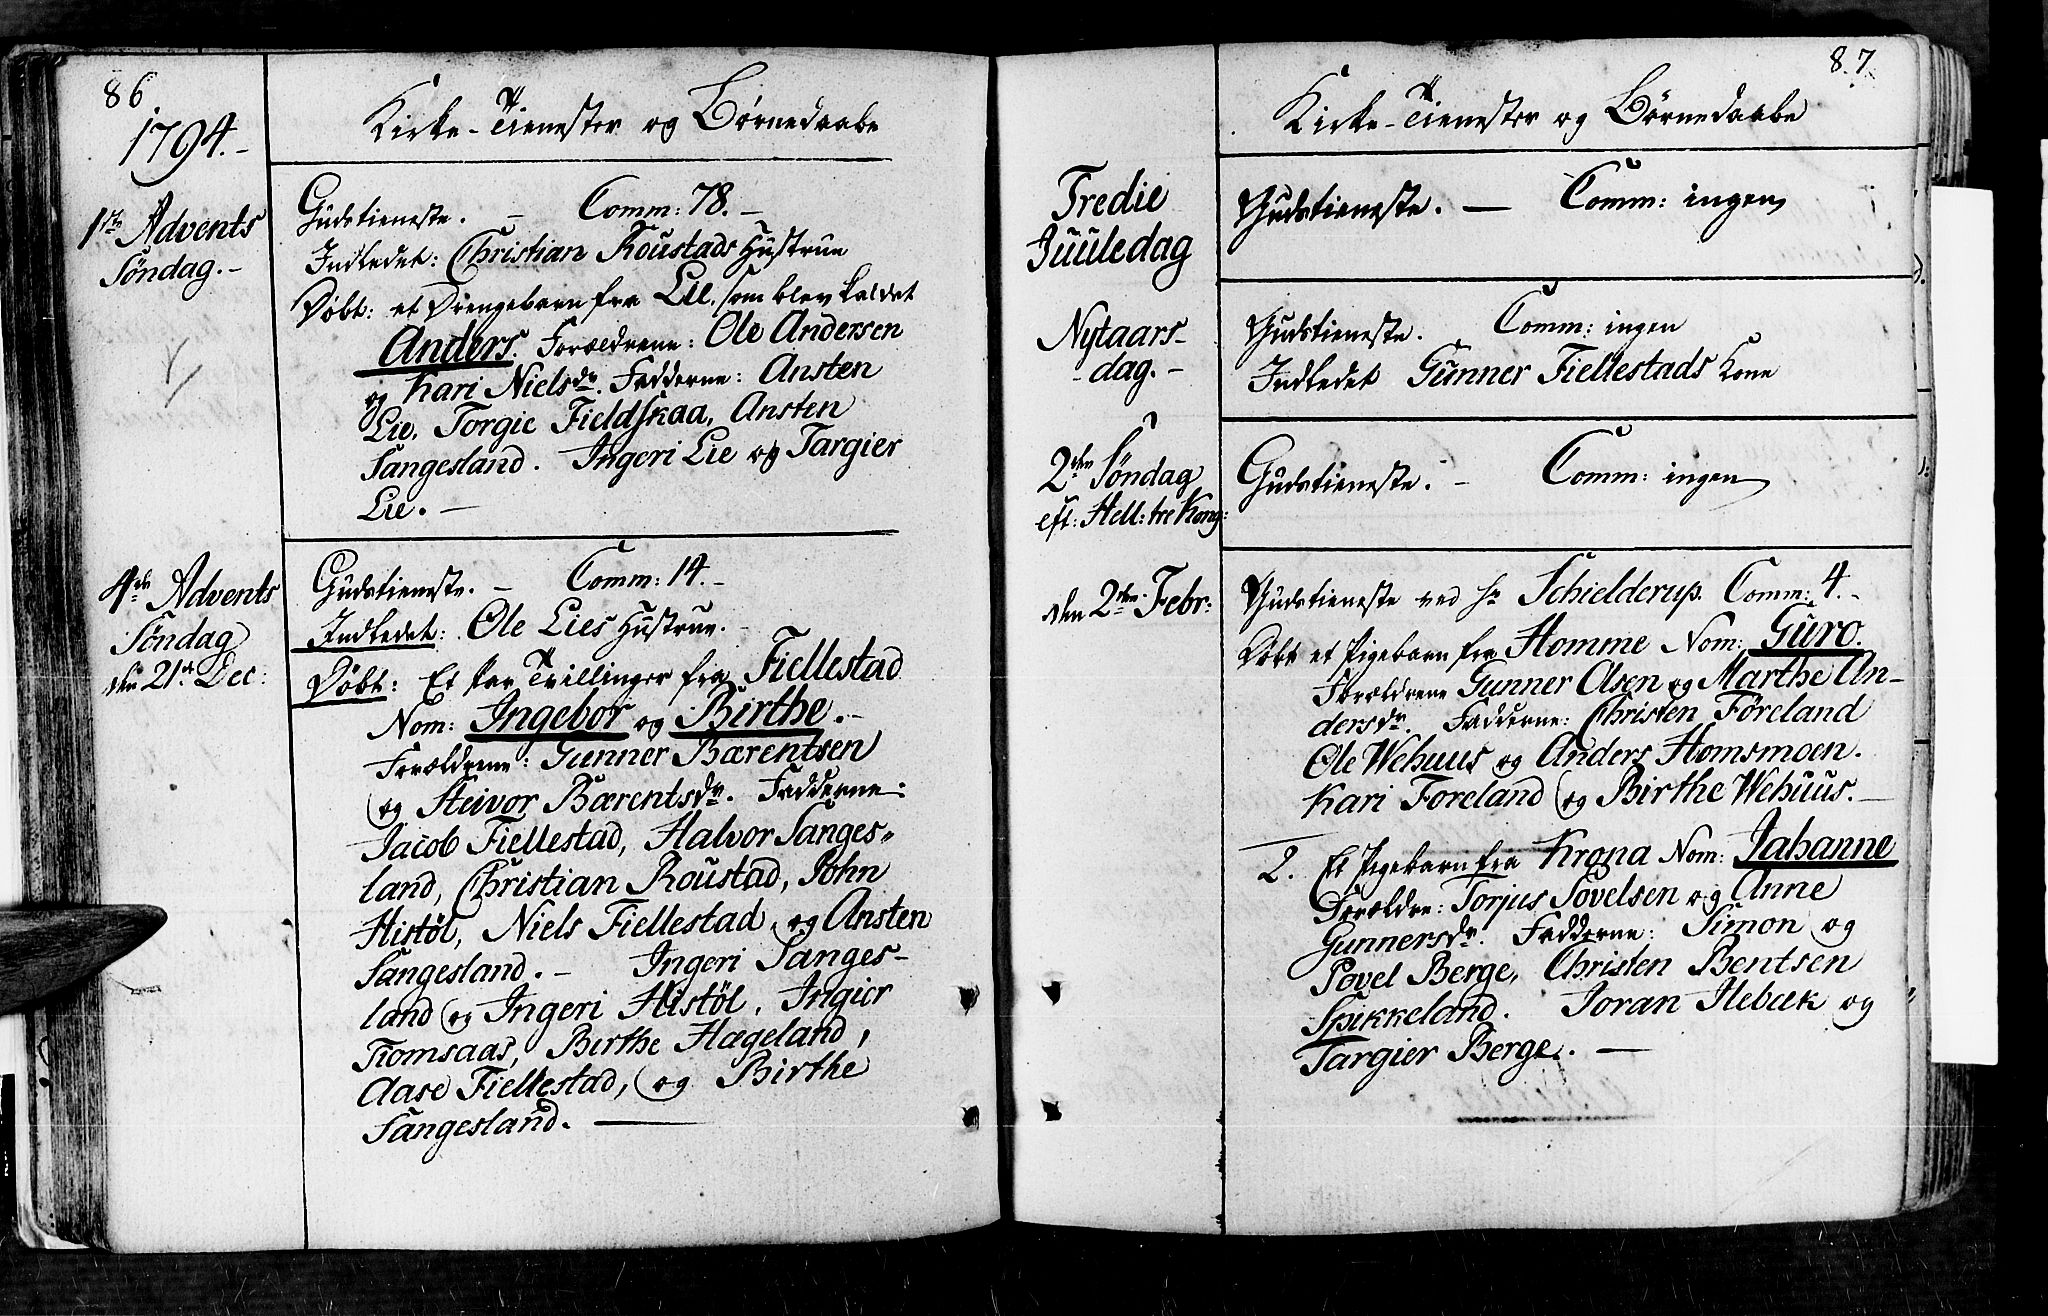 86.
1794.-
Kirke-Tienester og Børnedaabe
1ste Advents
Søndag.-
Gudstieneste. - Comm: 78.-
Indledet: Christian Roustads Hustrue
Døbt: et Drengebarn fra Lie, som blev kaldet
Anders. Forældrene: Ole Andersen
og Kari Nielsdr. Fadderne: Ansten
Lie, Torgie Fieldskaa, Ansten
Sangesland. Ingeri Lie og Targier
Lie. -
4de Advents
Søndag
den 21de Dec:
Gudstieneste. - Comm: 14.-
Indledet: Ole Lies Hustrue.-
Døbt: Et Par Tvillinger fra Fiellestad
Nom: Ingebor og Birthe.-
Forældrene: Gunner Bærentsen
og Steivor Bærentsdr. Fadderne:
Jacob Fiellestad, Halvor Sanges-
land, Christian Roustad, John
Histøl, Niels Fiellestad, og Ansten
Sangesland. - Ingeri Sanges-
land og Ingeri Histøl, Ingier
Romsaas, Birthe Hægeland,
Aase Fiellestad, og Birthe
Sangesland. -
87.
Kirke-Tienester og Børnedaabe
Tredie
Juuledag
Gudstieneste. - Comm: ingen
Nytaars-
-dag.-
Gudstieneste. Comm: ingen
Indledet Gunner Fiellestads Kone
2den Søndag
eft: Hell: tre Kong:
Gudstieneste. - Comm: ingen
den 2den Febr:
Gudstieneste ved Hr Schielderup. Comm: 4.-
Døbt et Pigebarn fra Homme Nom: Guro.
Forældrene Gunner Olsen og Marthe An-
dersdr. Fadderne: Christen Føreland
Ole Wehuus og Anders Homsmoen.
Kari Foreland og Birthe Wehuus.-
2. Et Pigebarn fra Krona Nom: Jahanne
Forældre: Torjus Sovelsen og Anne
Gunnersdr. Fadderne: Simon og
Povel Berge, Christen Bentsen
Spikkeland. Joran Hebæk og
Targier Berge. -